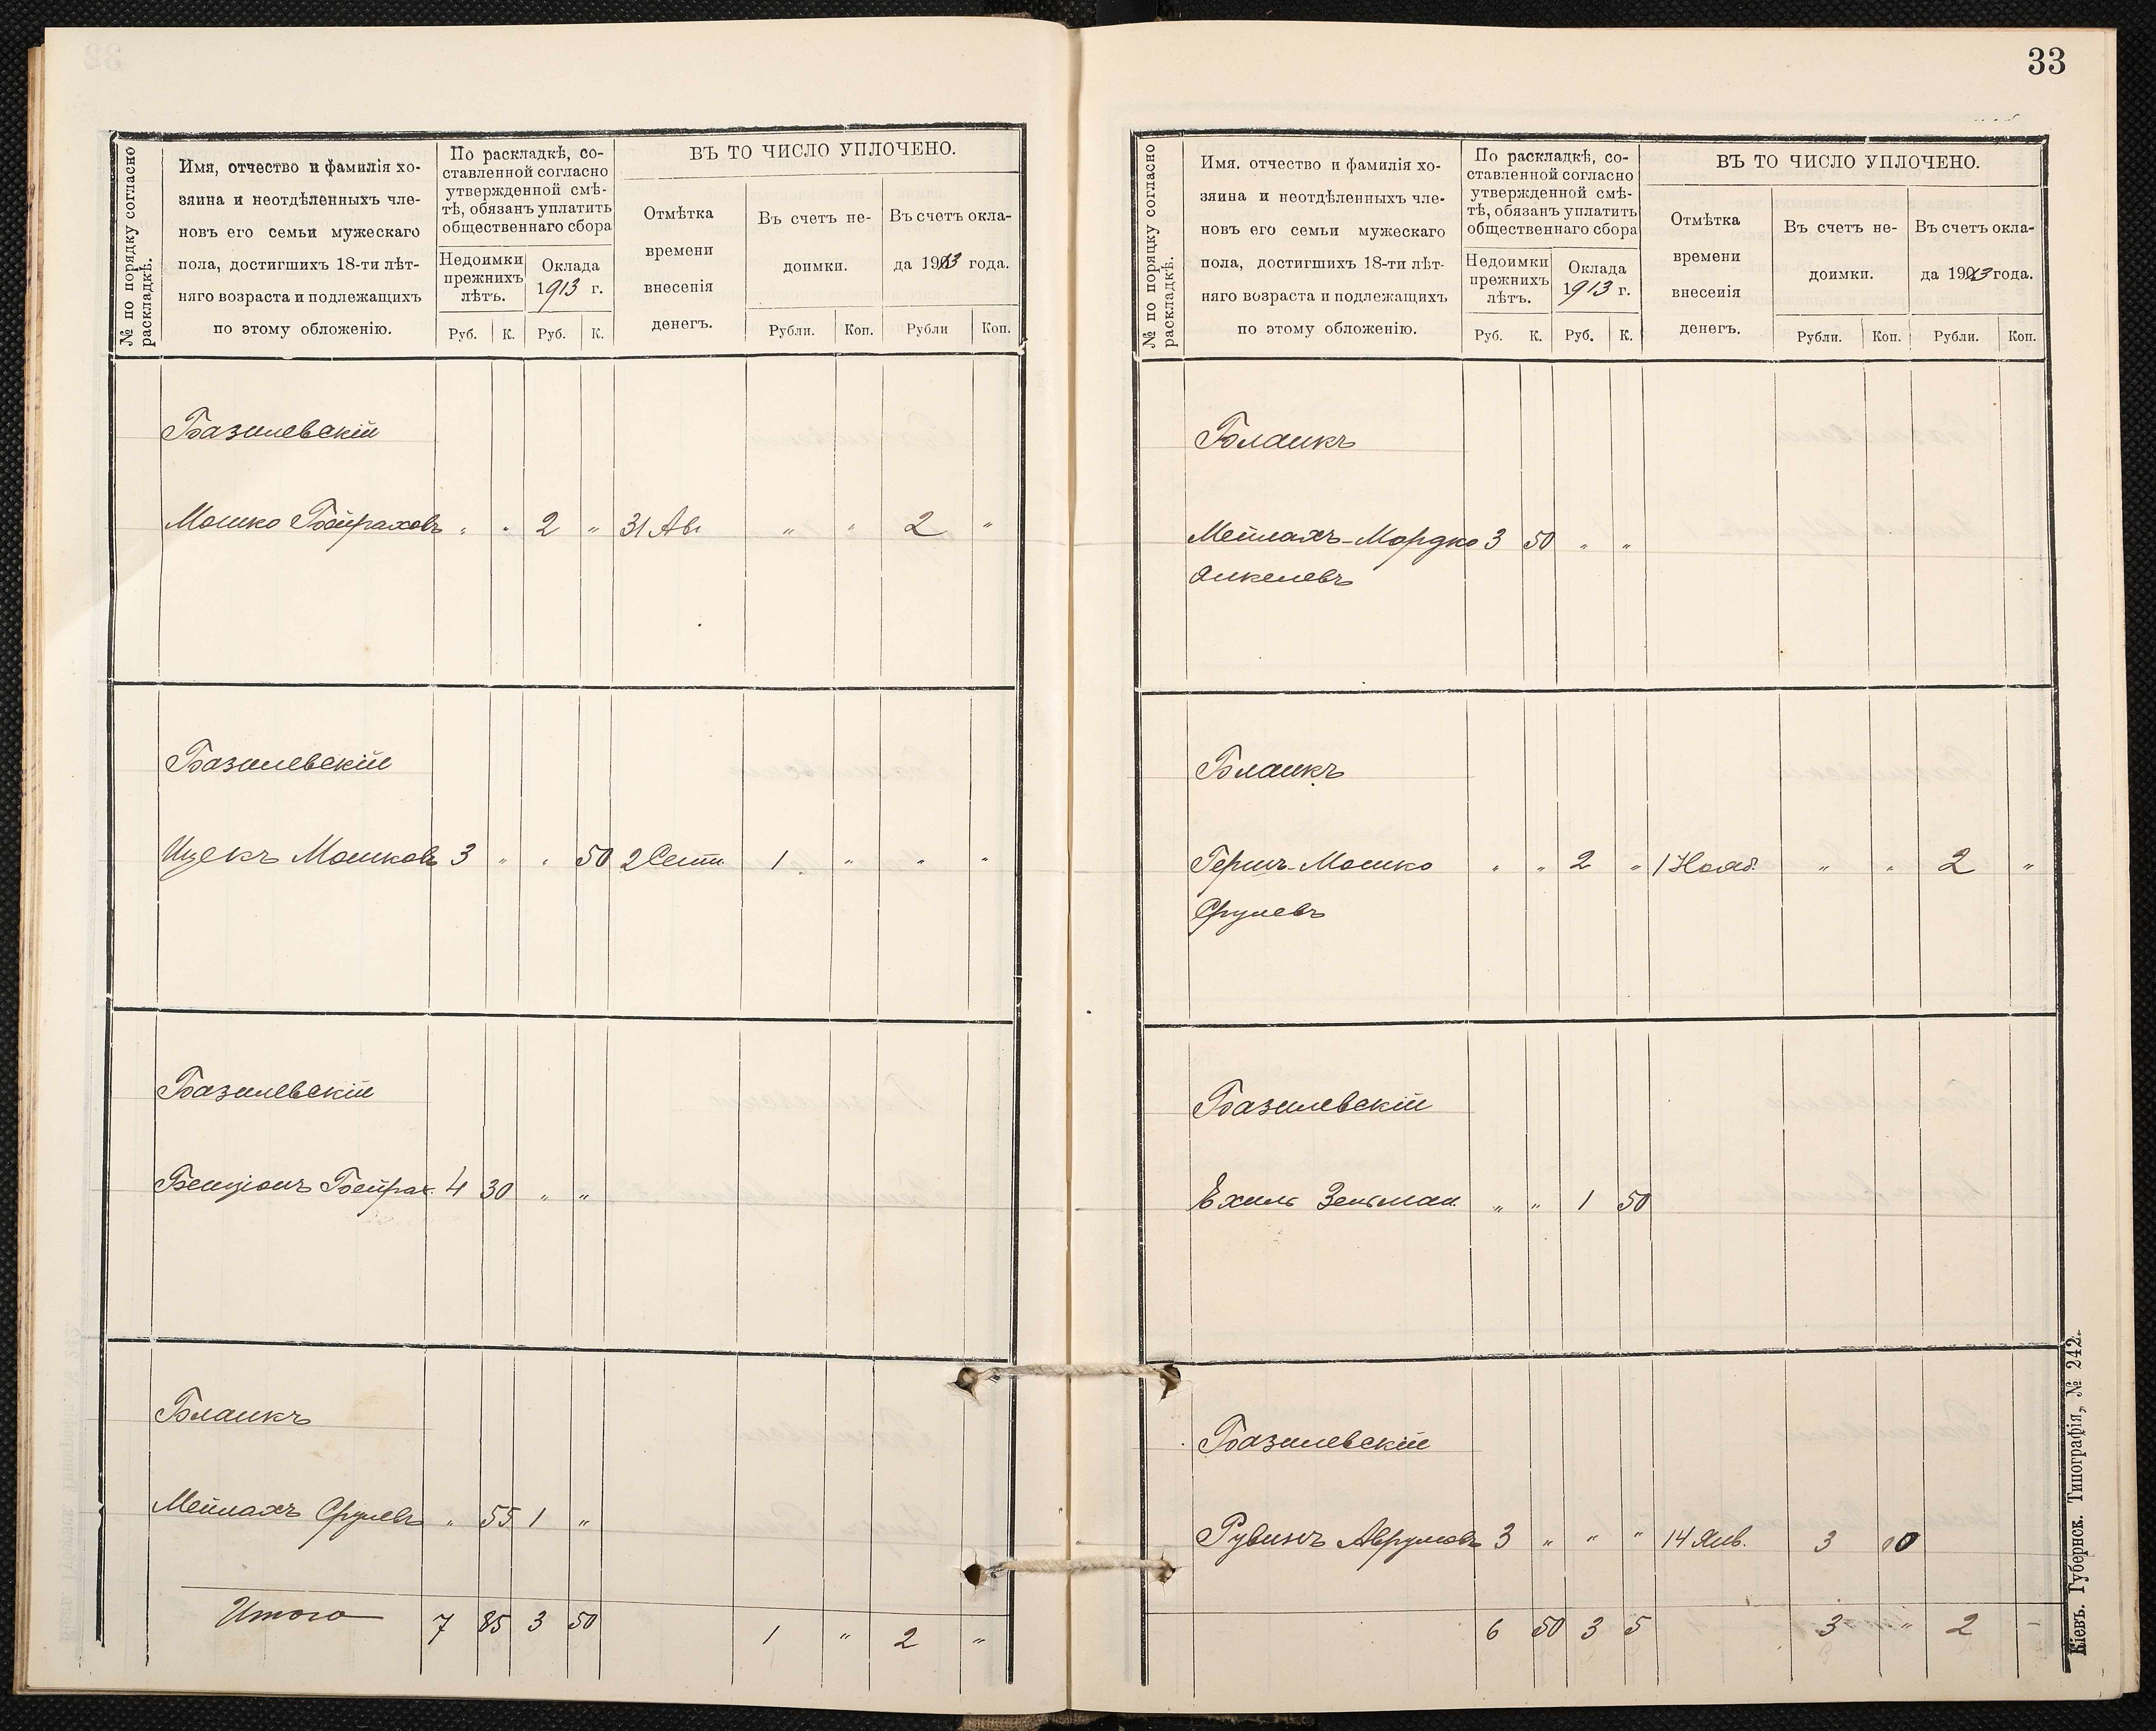 № по порядку согласно
раскладкѣ.
Имя, отчество и фамилія хо-
зяина и неотдѣленныхъ чле-
новъ его семьи мужескаго
пола, достигшихъ 18-ти лѣт-
няго возраста и подлежащихъ
по этому обложенію.
По раскладкѣ, со-
ставленной согласно
утвержденной смѣ-
тѣ, обязанъ уплатить
общественнаго сбора
Недоимки
прежнихъ
лѣтъ.
Оклада
1913 г.
Руб. К. Руб. К.
ВЪ ТО ЧИСЛО УПЛОЧЕНО.
Отмѣтка
времени
внесенія
денегъ.
Въ счетъ не-
доимки.
Рубли. Коп.
Въ счетъ окла-
да 1913 года.
Рубли Коп.
Базилевскій
Мошко Бейраховъ " " 2 " 31 Авг " " 2 "
Базилевскій
Ицекъ Мошковъ 3 " " 50 2 Сент 1 " " "
Базилевскій
Бенціонъ Бейрах. 4 30 " "
Бланкъ
Мейлахъ Срулевъ " 55 1 "
Итого 7 85 3 50 1 " 2 "
33
№ по порядку согласно
раскладкѣ.
Имя. отчество и фамилія хо-
зяина и неотдѣленныхъ чле-
новъ его семьи мужескаго
пола, достигшихъ 18-ти лѣт-
няго возраста и подлежащихъ
по этому обложенію.
По раскладкѣ, со-
ставленной согласно
утвержденной смѣ-
тѣ, обязанъ уплатить
общественнаго сбора
Недоимки
прежнихъ
лѣтъ.
Оклада
1913 г.
Руб. К. Руб. К.
ВЪ ТО ЧИСЛО УПЛОЧЕНО.
Отмѣтка
времени
внесенія
денегъ.
Въ счетъ не-
доимки.
Рубли. Коп.
Въ счетъ окла-
да 1913 года.
Рубли. Коп.
Бланкъ
Мейлахъ-Мордко 3 50 " "
Янкелевъ
Бланкъ
Гершъ-Мошко " " 2 " 1 Нояб. " " 2 "
Срулевъ
Базилевскій
Ехиль Зельман. " " 1 50
Базилевскій
Рувинъ Аврумовъ 3 " " " 14 Янв. 3 00
6 50 3 5 3 " 2 –
Кіевъ. Губернск. Типографія, № 242.